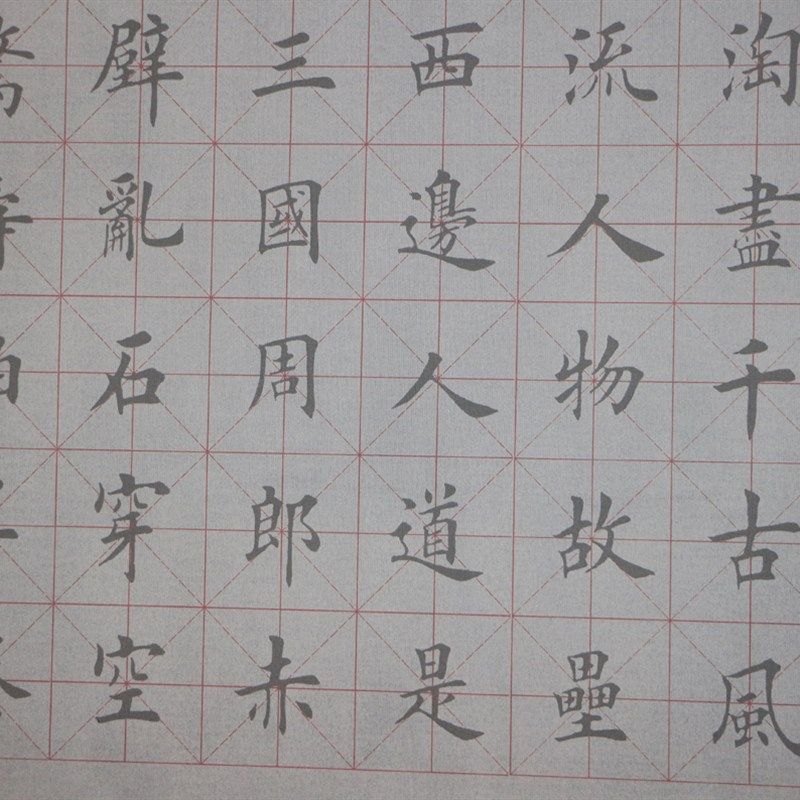 淘盡千古風
流人物故壘
西邊人道是
三國周郎赤
壁亂石穿空